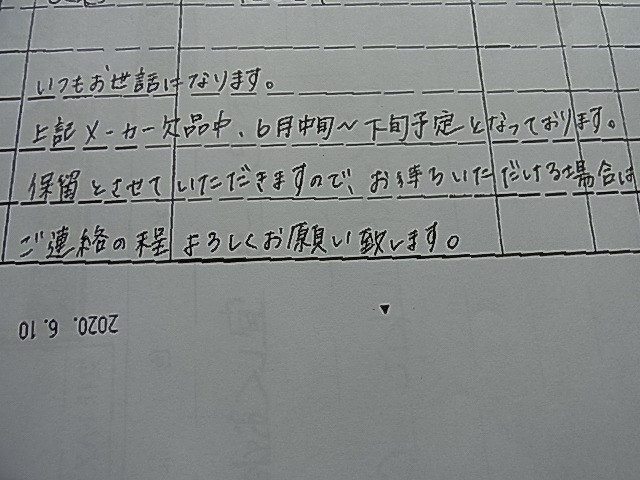 いつもお世話になります。
上記メーカー欠品中、6月中旬～下旬予定となっております。
保留とさせていただきますので、お待ちいただける場合は
ご連絡の程よろしくお願い致します。
2020. 6. 10